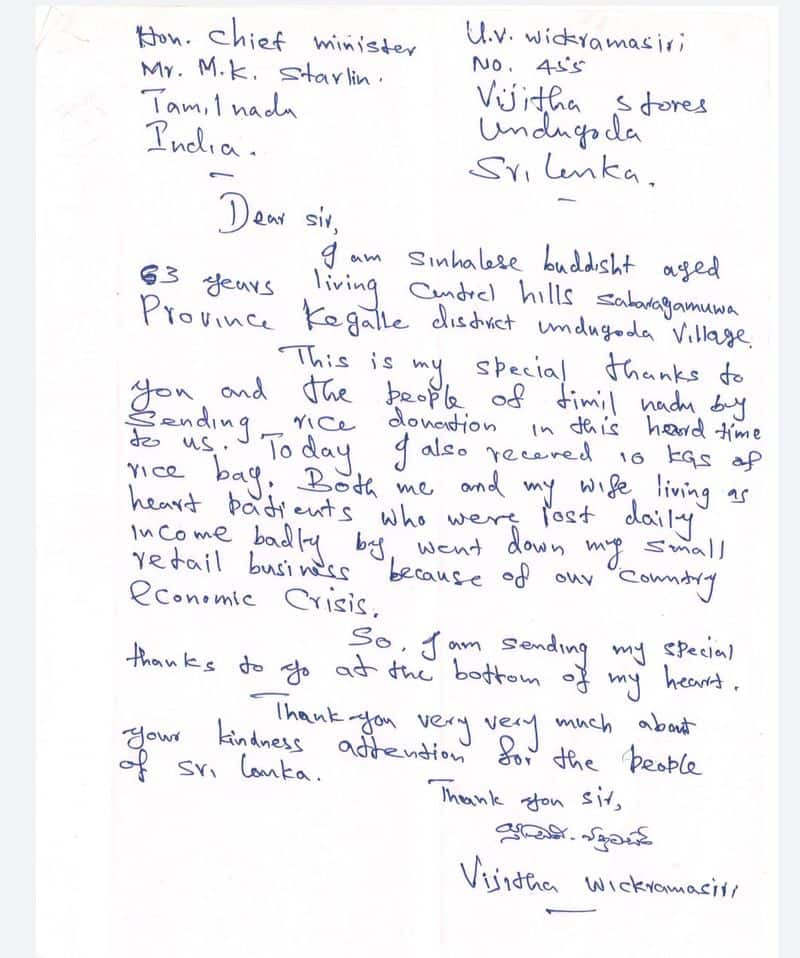 Hon. Chief minister
Mr. M.K. Starlin.
Tamil nadu
India.
U.V. Wickramasiri
No. 455
Vijitha stores
Undugoda
Sri Lanka.
Dear sir,
I am Sinhalese buddisht aged
63 years living Centrel hills Sabaragamuwa
Province Kegalle district undugoda Village.
This is my special thanks to
you and the people of timil nadu by
Sending rice donation in this heard time
to us. Today I also recered 10 KGS of
rice bag. Both me and my wife living as
heart patients who were lost daily
income badly by went down my small
retail business because of our country
Economic Crisis.
So, I am sending my special
thanks to yo at the bottom of my heart.
Thank-you very very much about
your kindness attention for the people
of Sri Lanka.
Thank you sir,
Vijitha Wickramasiri